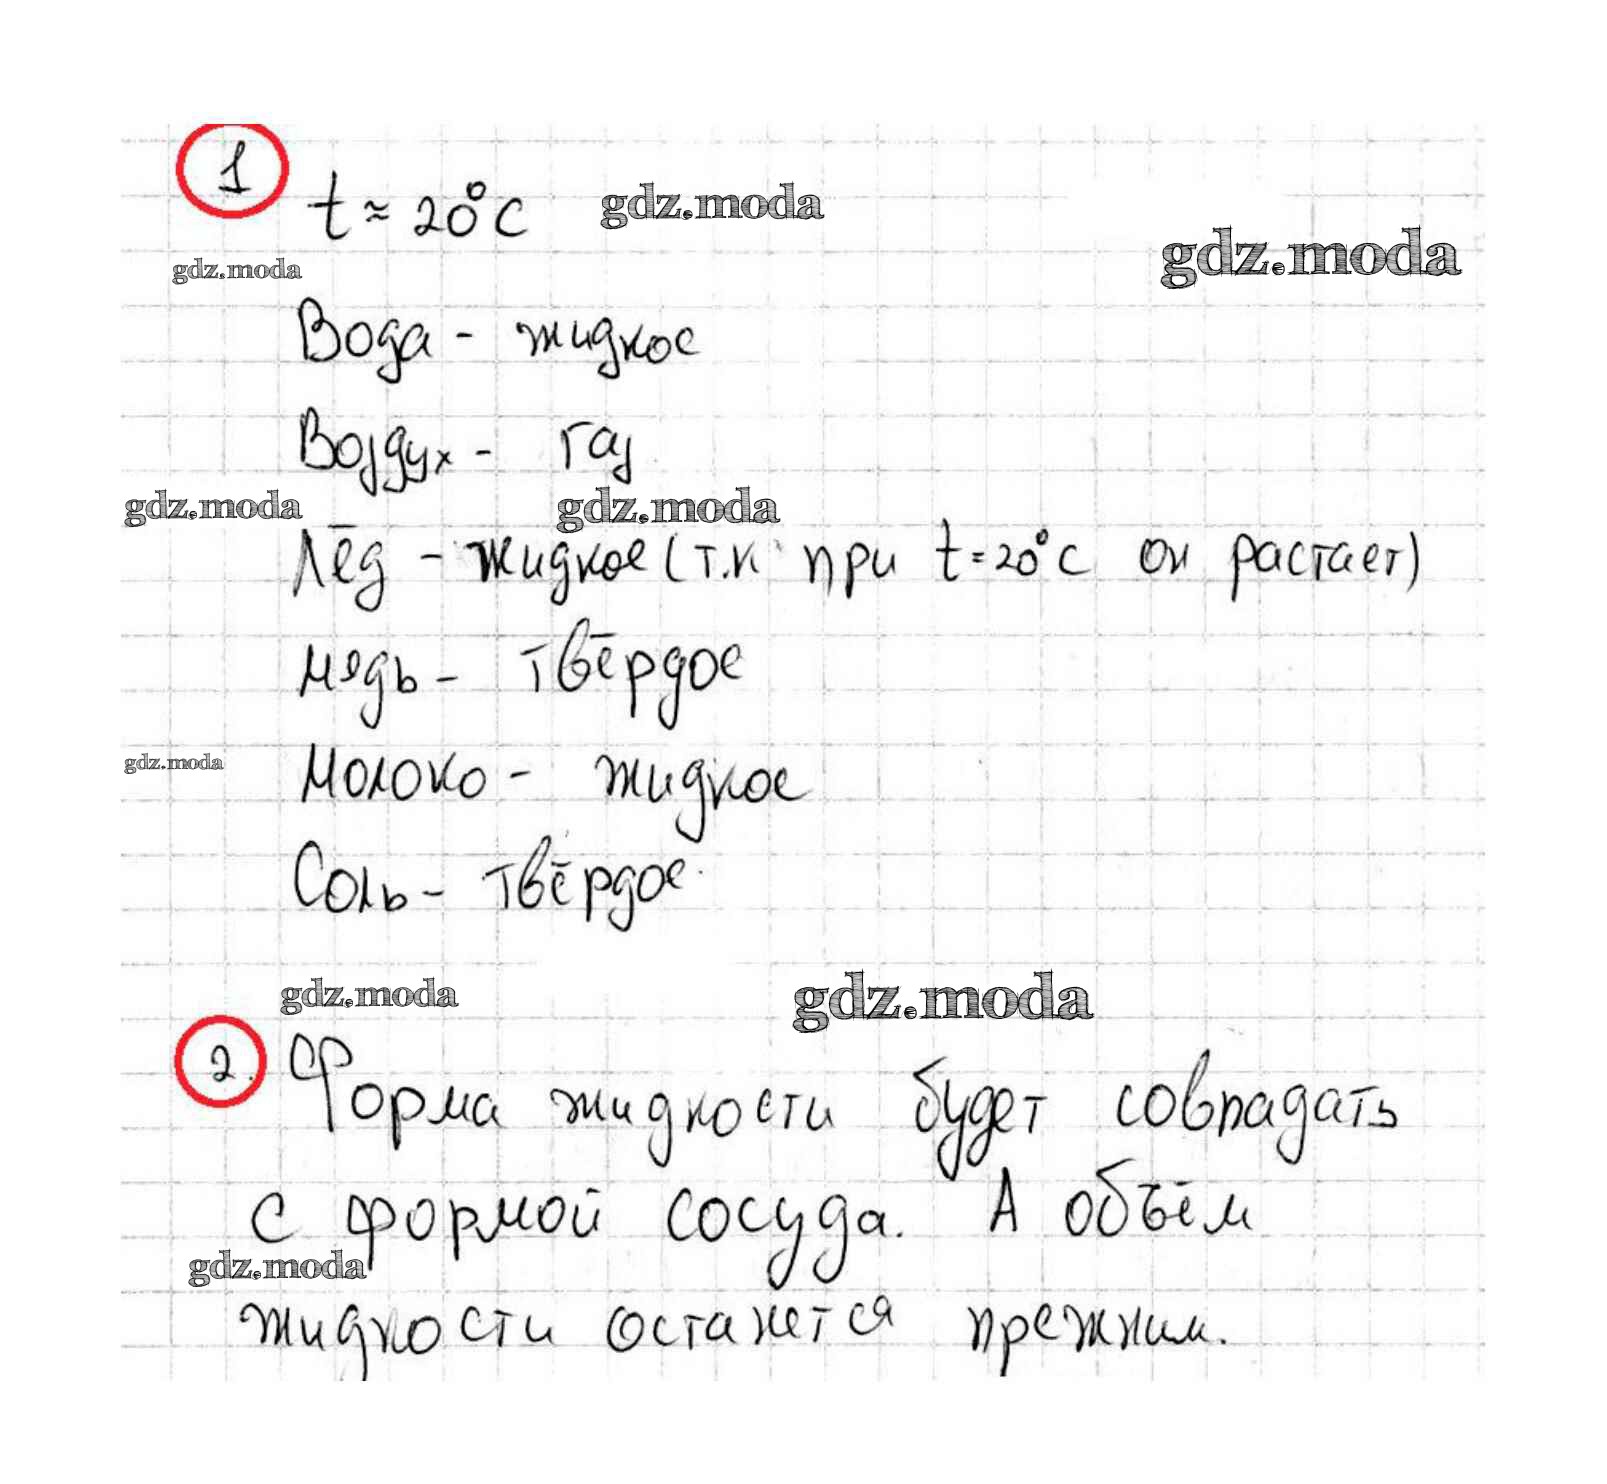 1
t ≈ 20°C gdz.moda
gdz.moda
gdz.moda
Вода - жидкое
Воздух - газ
gdz.moda gdz.moda
Лёд - жидкое (т.к при t=20°C он растает)
Медь - твёрдое
gdz.moda
Молоко - жидкое
Соль - твёрдое.
gdz.moda gdz.moda
2. Форма жидкости будет совпадать
с формой сосуда. А объём
gdz.moda
жидкости останется прежним.